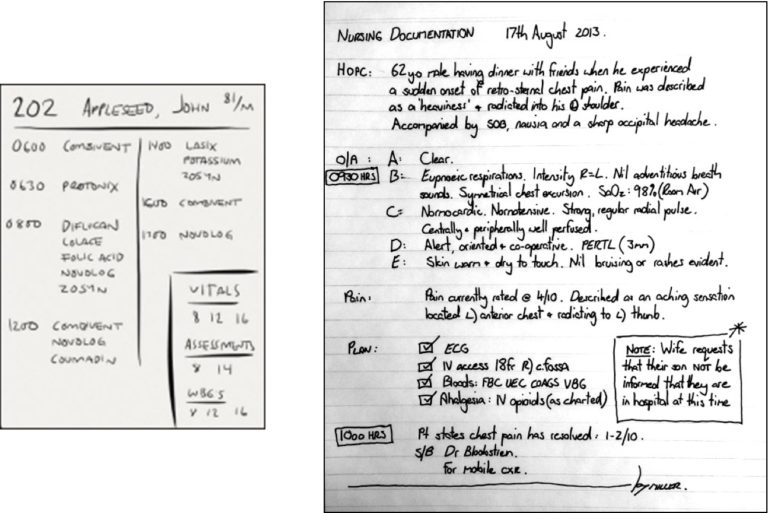 202 APPLESEED, JOHN 81/M
0600 COMBIVENT
0630 PROTONIX
0800 DIFLUCAN
COLACE
FOLIC ACID
NOVOLOG
ZOSYN
1200 COMBIVENT
NOVOLOG
COUMADIN
1400 LASIX
POTASSIUM
ZOSYN
1600 COMBIVENT
1700 NOVOLOG
VITALS
8 12 16
ASSESSMENTS
8 14
WBGS
8 12 16
NURSING DOCUMENTATION 17th August 2013.
HOPC: 62yo male having dinner with friends when he experienced
a sudden onset of retro-sternal chest pain. Pain was described
as a 'heaviness' + radiated into his L shoulder.
Accompanied by SOB, nausia and a sharp occipital headache.
O/A: A: Clear.
0930 HRS B: Eupnoeic respirations. Intensity R=L. Nil adventitious breath
sounds. Symetrical chest excursion. SaO2: 98% (Room Air)
C: Normocardic. Normotensive. Strong, regular radial pulse.
Centrally + peripherally well perfused.
D: Alert, oriented + co-operative. PERTL (3mm)
E: Skin warm + dry to touch. Nil bruising or rashes evident.
Pain: Pain currently rated @ 4/10. Described as an aching sensation
located L) anterior chest + radiating to L) thumb.
PLAN: ECG
IV access 18fr R) c.fossa
Bloods: FBC UEC COAGS VBG
Analgesia: IV opioids (as charted)
NOTE: Wife requests
that their son NOT be
informed that they are
in hospital at this time
1000 HRS Pt states chest pain has resolved: 1-2/10.
S/B Dr Bloobstien.
For mobile CXR.
MILLER.